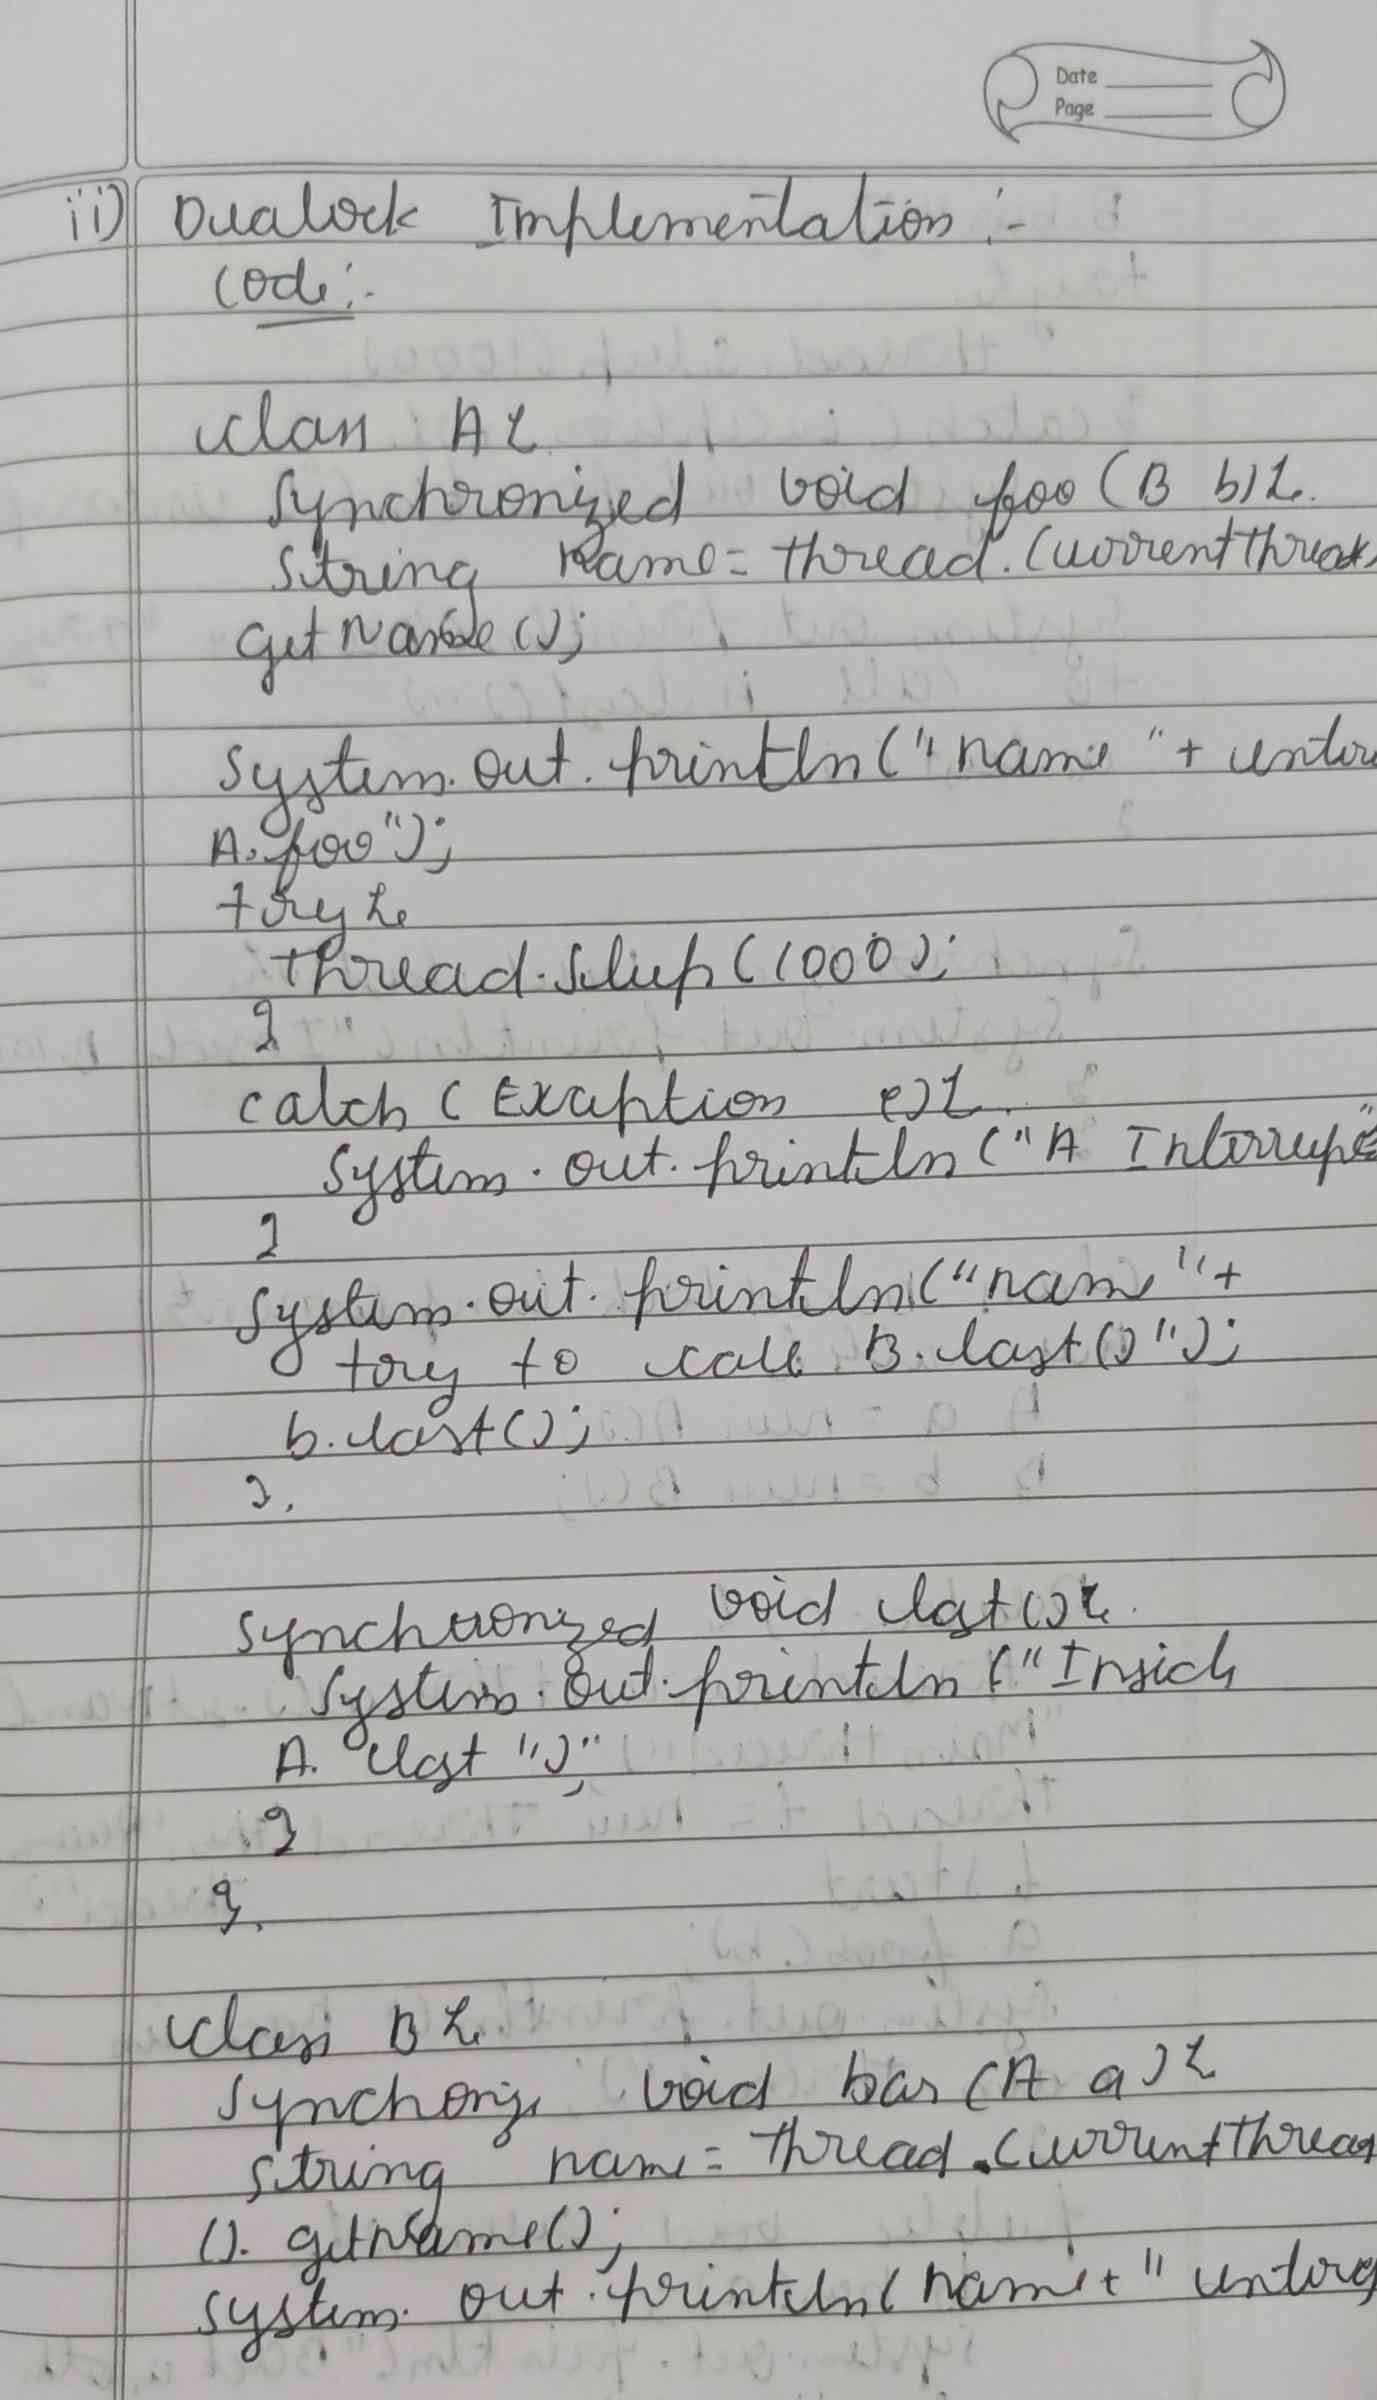 Date
Page
ii) Dealock Implementation :-
Code :-
class A {
synchronized void foo (B b) {
String name = thread. Current thread
get Name ();
System. out. println (" name " + enter
A. foo ");
try {
thread. Sleep (1000);
}
catch ( Exception e) {
System. out. println (" A Interrupt"
}
System. out. println (" name " +
try to call B. last () ");
b. last ();
}
synchronized void last () {
System. out. println (" Inside
A. last ");
}
}
class B {
Synchoniz void bar (A a) {
String name = thread. Current thread
(). getName ();
System. out. println ( name + " entere